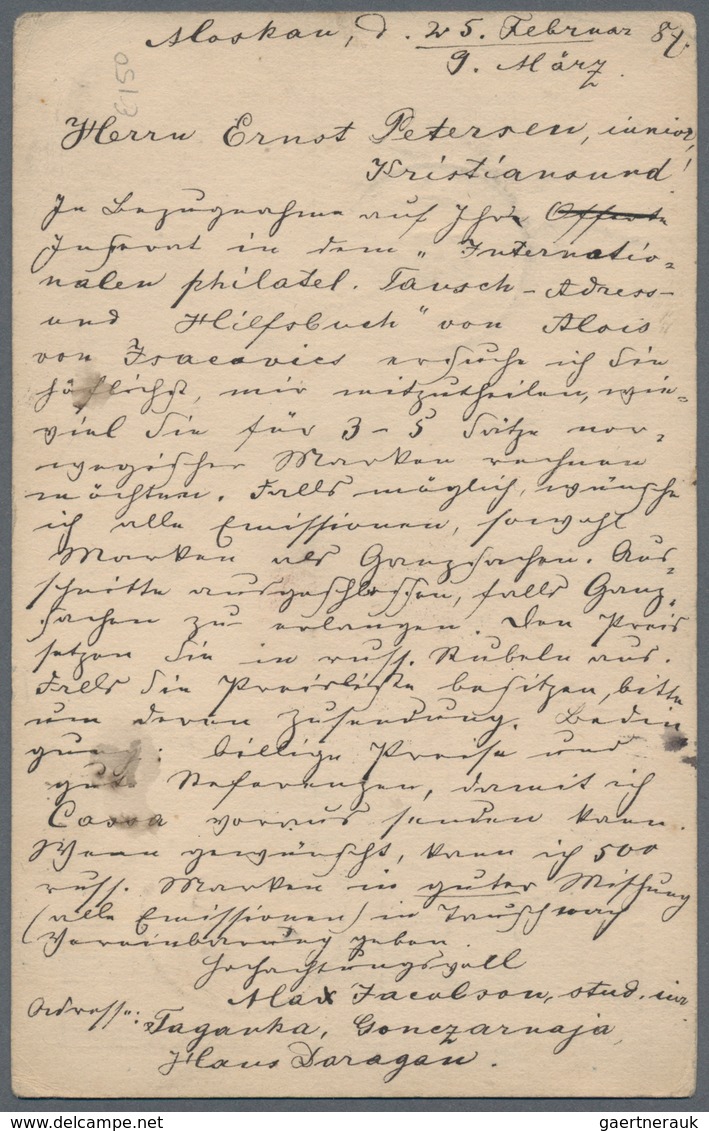 Moskau, d. 25. Februar 87.
9. März
£150
Herrn Ernst Petersen, junior,
Kristiansund!
In Bezugnahme auf Ihr Offerte
Inserat in dem „Internatio-
nalen philatel. Tausch-Adress-
und Hilfsbuch" von Alois
von Isacovics ersuche ich Sie
höflichst, mir mitzutheilen, wie-
viel Sie für 3-5 Sätze nor-
wegischer Marken rechnen
möchten. Falls möglich, wünsche
ich alle Emissionen, sowohl
Marken als Ganzsachen. Aus-
schnitte ausgeschlossen, falls Ganz-
sachen zu erlangen. Den Preis
setzen Sie in russ. Rubeln aus.
Falls Sie Preisliste besitzen, bitte
um deren Zusendung. Bedin
gung: billige Preise und
gute Referenzen, damit ich
Cassa voraus senden kann.
Wenn gewünscht, kann ich 500
russ. Marken in guter Mischung
(alle Emissionen) in Tausch nach
Vereinbarung geben.
Hochachtungsvoll
Max Jacobson, stud. jur.
Adresse: Taganka, Gonczarnaja,
Haus Daragan.
gaertnerauk